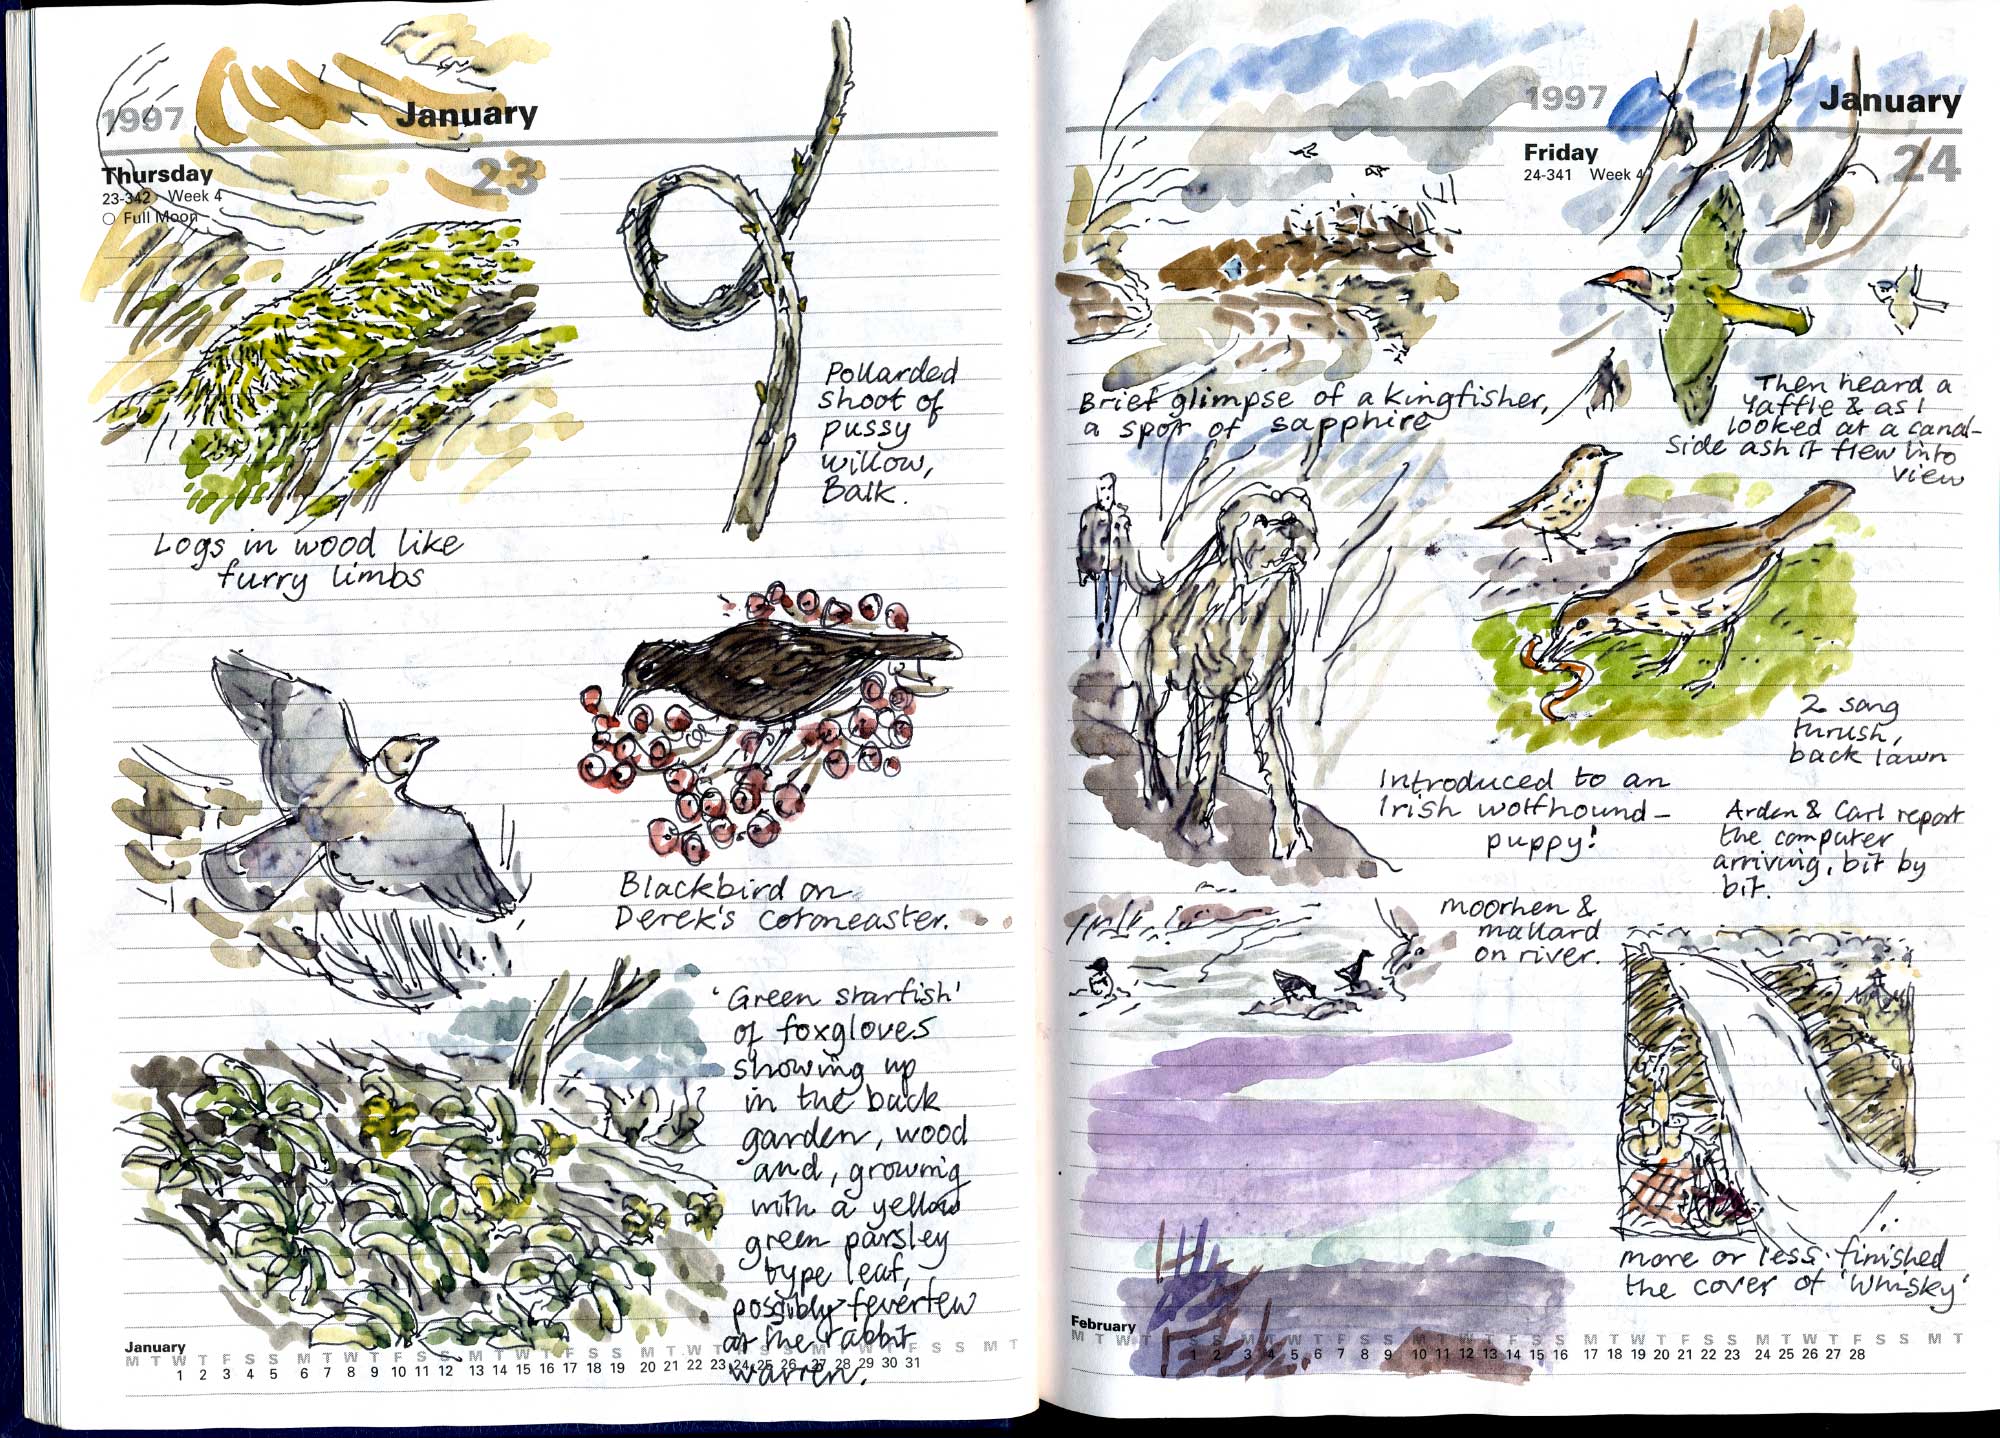 1997 January
Thursday 23
23-342 Week 4
Full Moon
Pollarded
shoot of
pussy
willow,
Balk.
Logs in wood like
furry limbs
Blackbird on
Derek's cotoneaster.
'Green starfish'
of foxgloves
showing up
in the back
garden, wood
and, growing
with a yellow
green parsley
type leaf,
possibly feverfew
at the rabbit
warren.
January
M T W T F S S M T W T F S S M T W T F S S M T W T F S S M T W T F S S M T
1 2 3 4 5 6 7 8 9 10 11 12 13 14 15 16 17 18 19 20 21 22 23 24 25 26 27 28 29 30 31
1997 January
Friday 24
24-341 Week 4
Brief glimpse of a kingfisher,
a spot of sapphire
Then heard a
Yaffle & as I
looked at a canal-
side ash it flew into
view
2 song
thrush,
back lawn
Introduced to an
Irish wolfhound -
puppy!
Arden & Carl report
the computer
arriving, bit by
bit.
moorhen &
mallard
on river.
more or less finished
the cover of 'Whisky'
February
M T W T F S S M T W T F S S M T W T F S S M T W T F S S M T W T F S S M T
1 2 3 4 5 6 7 8 9 10 11 12 13 14 15 16 17 18 19 20 21 22 23 24 25 26 27 28